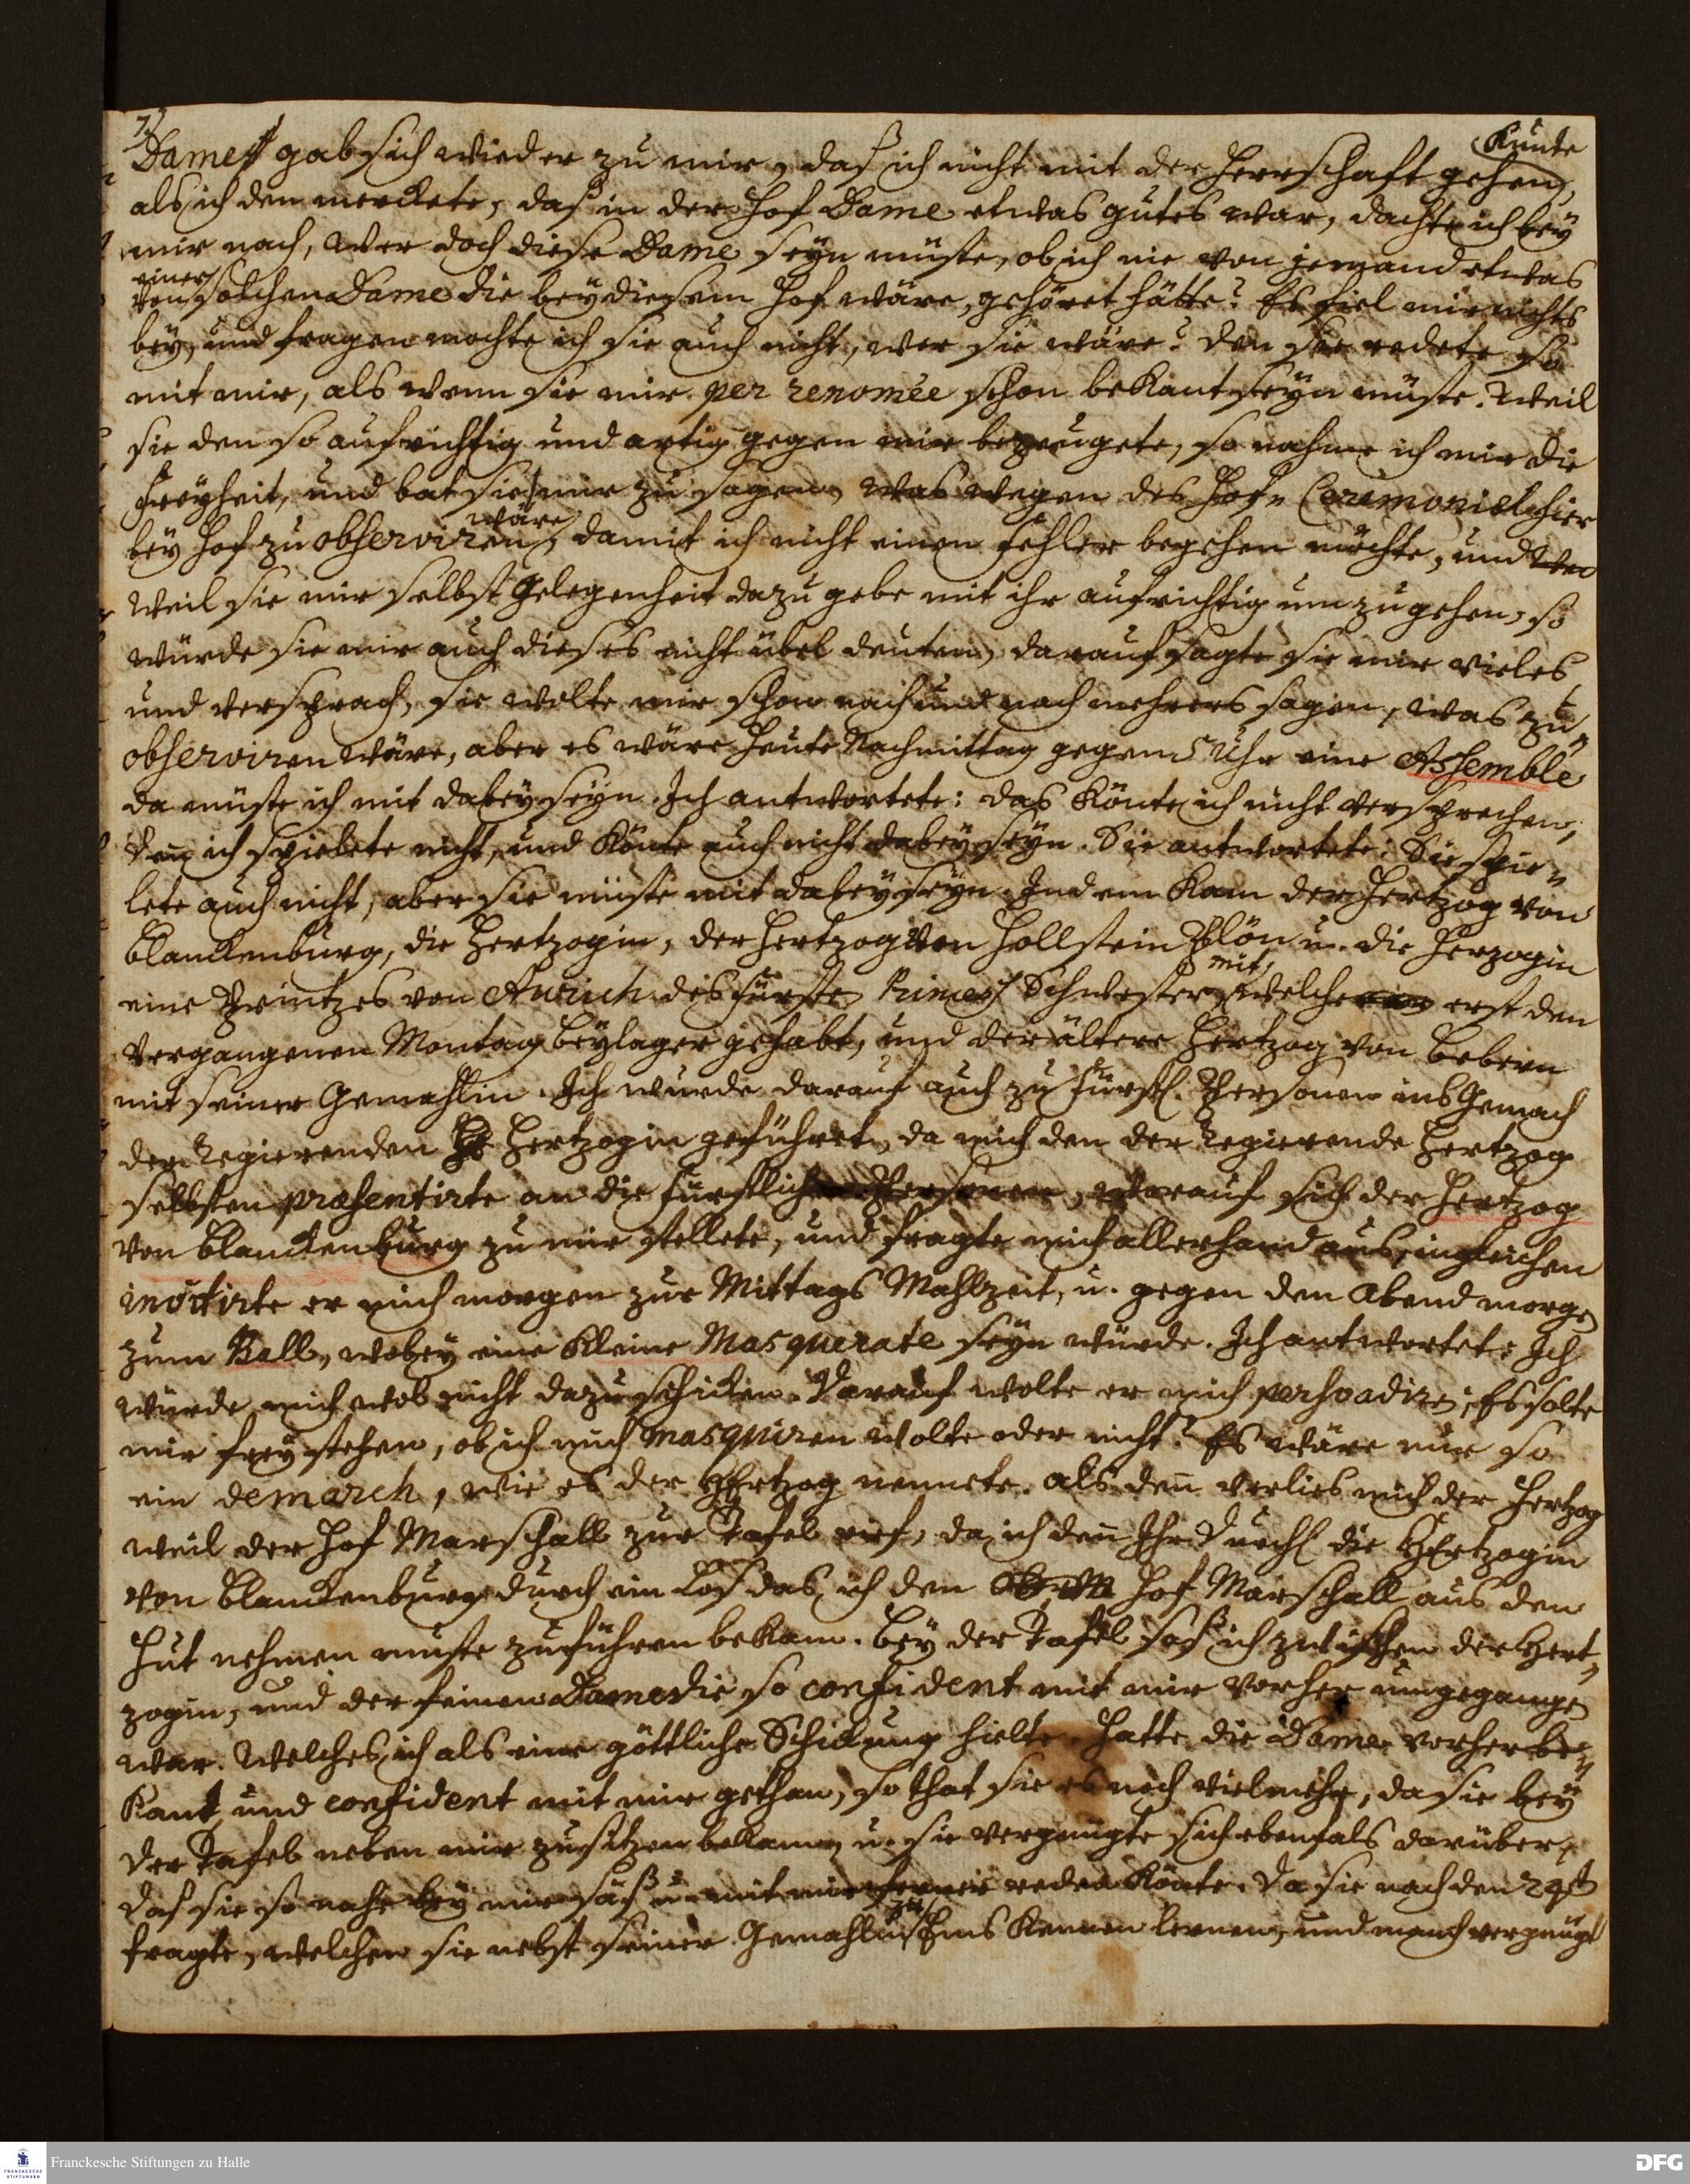 7.
Kunte
Dame gab sich wieder zu mir, daß ich nicht mit der Herrschaft gehen,
als ich den merckete, daß in der Hof Dame etwas gutes war, dachte ich bey
mir nach, wer doch diese Dame seyn müste, ob ich nie von jemand etwas
einer
von solchen Dame die bey diesem Hof wäre, gehöret hätte? Es fiel mir nichts
bey, und fragen mochte ich sie auch nicht, wer sie wäre? den sie redete so
mit mir, als wenn sie mir per renomée schon bekant seyn müste. Weil
sie den so aufrichtig und artig gegen mir bezeugete, so nahme ich mir die
Freyheit, und bat sie mir zu sagen, was wegen des Hof- Ceremoniel hier
wäre
bey Hof zu observiren, damit ich nicht einen Fehler begehen möchte, und
weil sie mir selbst gelegenheit dazu gebe mit ihr aufrichtig um zu gehen, so
würde sie mir auch dieses nicht übel deuten, darauf sagte sie mir vieles
und versprach, sie wolte mir schon nach und nach mehrers sagen, was zu
observiren wäre, aber es wäre heute Nachmittag gegen 5 Uhr eine Assemblé
da müste ich mit dabey seyn. Ich antwortete: das könte ich nicht versprechen,
den ich spielete nicht, und könte auch nicht dabey seyn. Sie antwortete: Sie spie-
lete auch nicht, aber sie müste mit dabey seyn. Indem kam der Hertzog von
Blanckenburg, die Hertzogin, der Hertzog von Hollstein Plön u. die Herzogin
mit
eine Printzes von Aurich des Fürsten Schwester, welcher erst den
vergangenen Montag Beylager gehabt, und der ältere Hertzog von Bebern
mit seiner Gemahlin. Ich wurde darauf auch zu Fürstl. Personen ins Gemach
der Regierenden Hertzogin geführet, da mich den der Regierende Hertzog
selbsten præsentirte an die Fürstlichen Personen, worauf sich der Hertzog
von Blanckenburg zu mir stellete, und fragte mich allerhand aus, ingleichen
invitirte er mich morgen zur Mittags Mahlzeit, u. gegen den Abend morgen
zum Ball, wobey eine kleine Masquerate seyn würde. Ich antwortete: Ich
würde mich wol nicht dazu schicken. Darauf wolte er mich persvadiren; Es solte
mir frey stehen, ob ich mich masquiren wolte oder nicht? Es wäre nur so
ein demarch, wie es der Hertzog nennete. Als den verlies mich der Hertzog
weil der Hof Marschall zur Tafel rief, da ich den Ihr Durchl die Hertzogin
von Blanckenburg durch ein Loß das ich den Hof Marschall aus den
Hut nehmen muste zu führen bekam. Bey der Tafel saß ich zwischen der Hert-
zogin, und der feinen Dame die so confident mit mir vorher umgegangen
war. Welches ich als eine göttliche Schickung hielte. Hatte die Dame vorher be-
kant und confident mit mir gethan, so that sie es noch vielmehr, da sie bey
der Tafel neben mir zu sitzen bekam, u. sie vergnügte sich ebenfals darüber,
daß sie so nahe bey mir säß u. mit mir ferner reden könte. Da sie nach den
zu
fragte, welchen sie nebst seiner Gemahlin Ems kennen lernen, und manch vergnügt
Franckesche Stiftungen zu Halle
FRANCKESCHE STIFTUNGEN
DFG